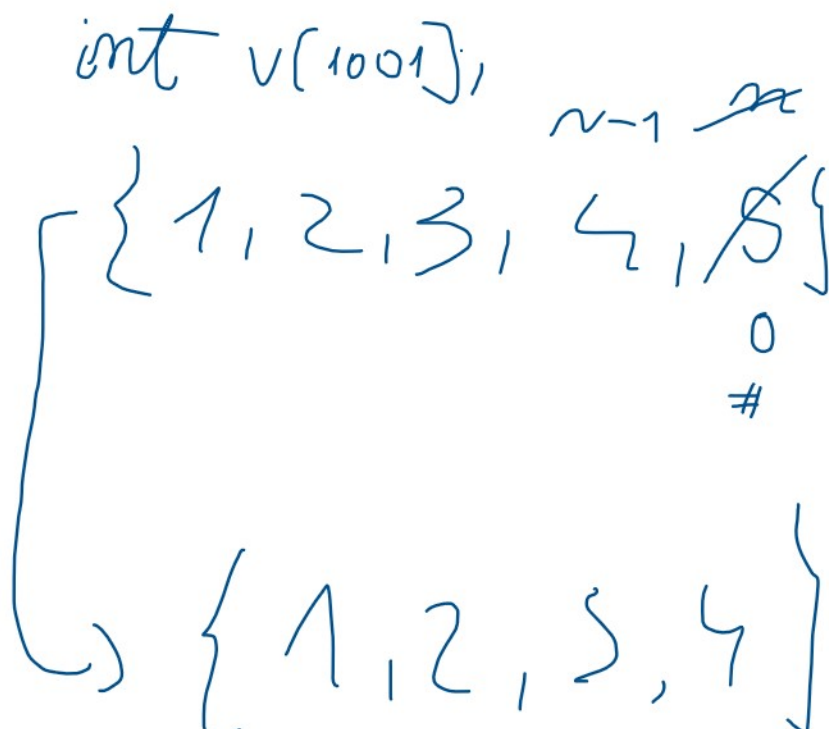 int v[1001];
n-1 n
{1, 2, 3, 4, 5}
0
#
{1, 2, 3, 4}